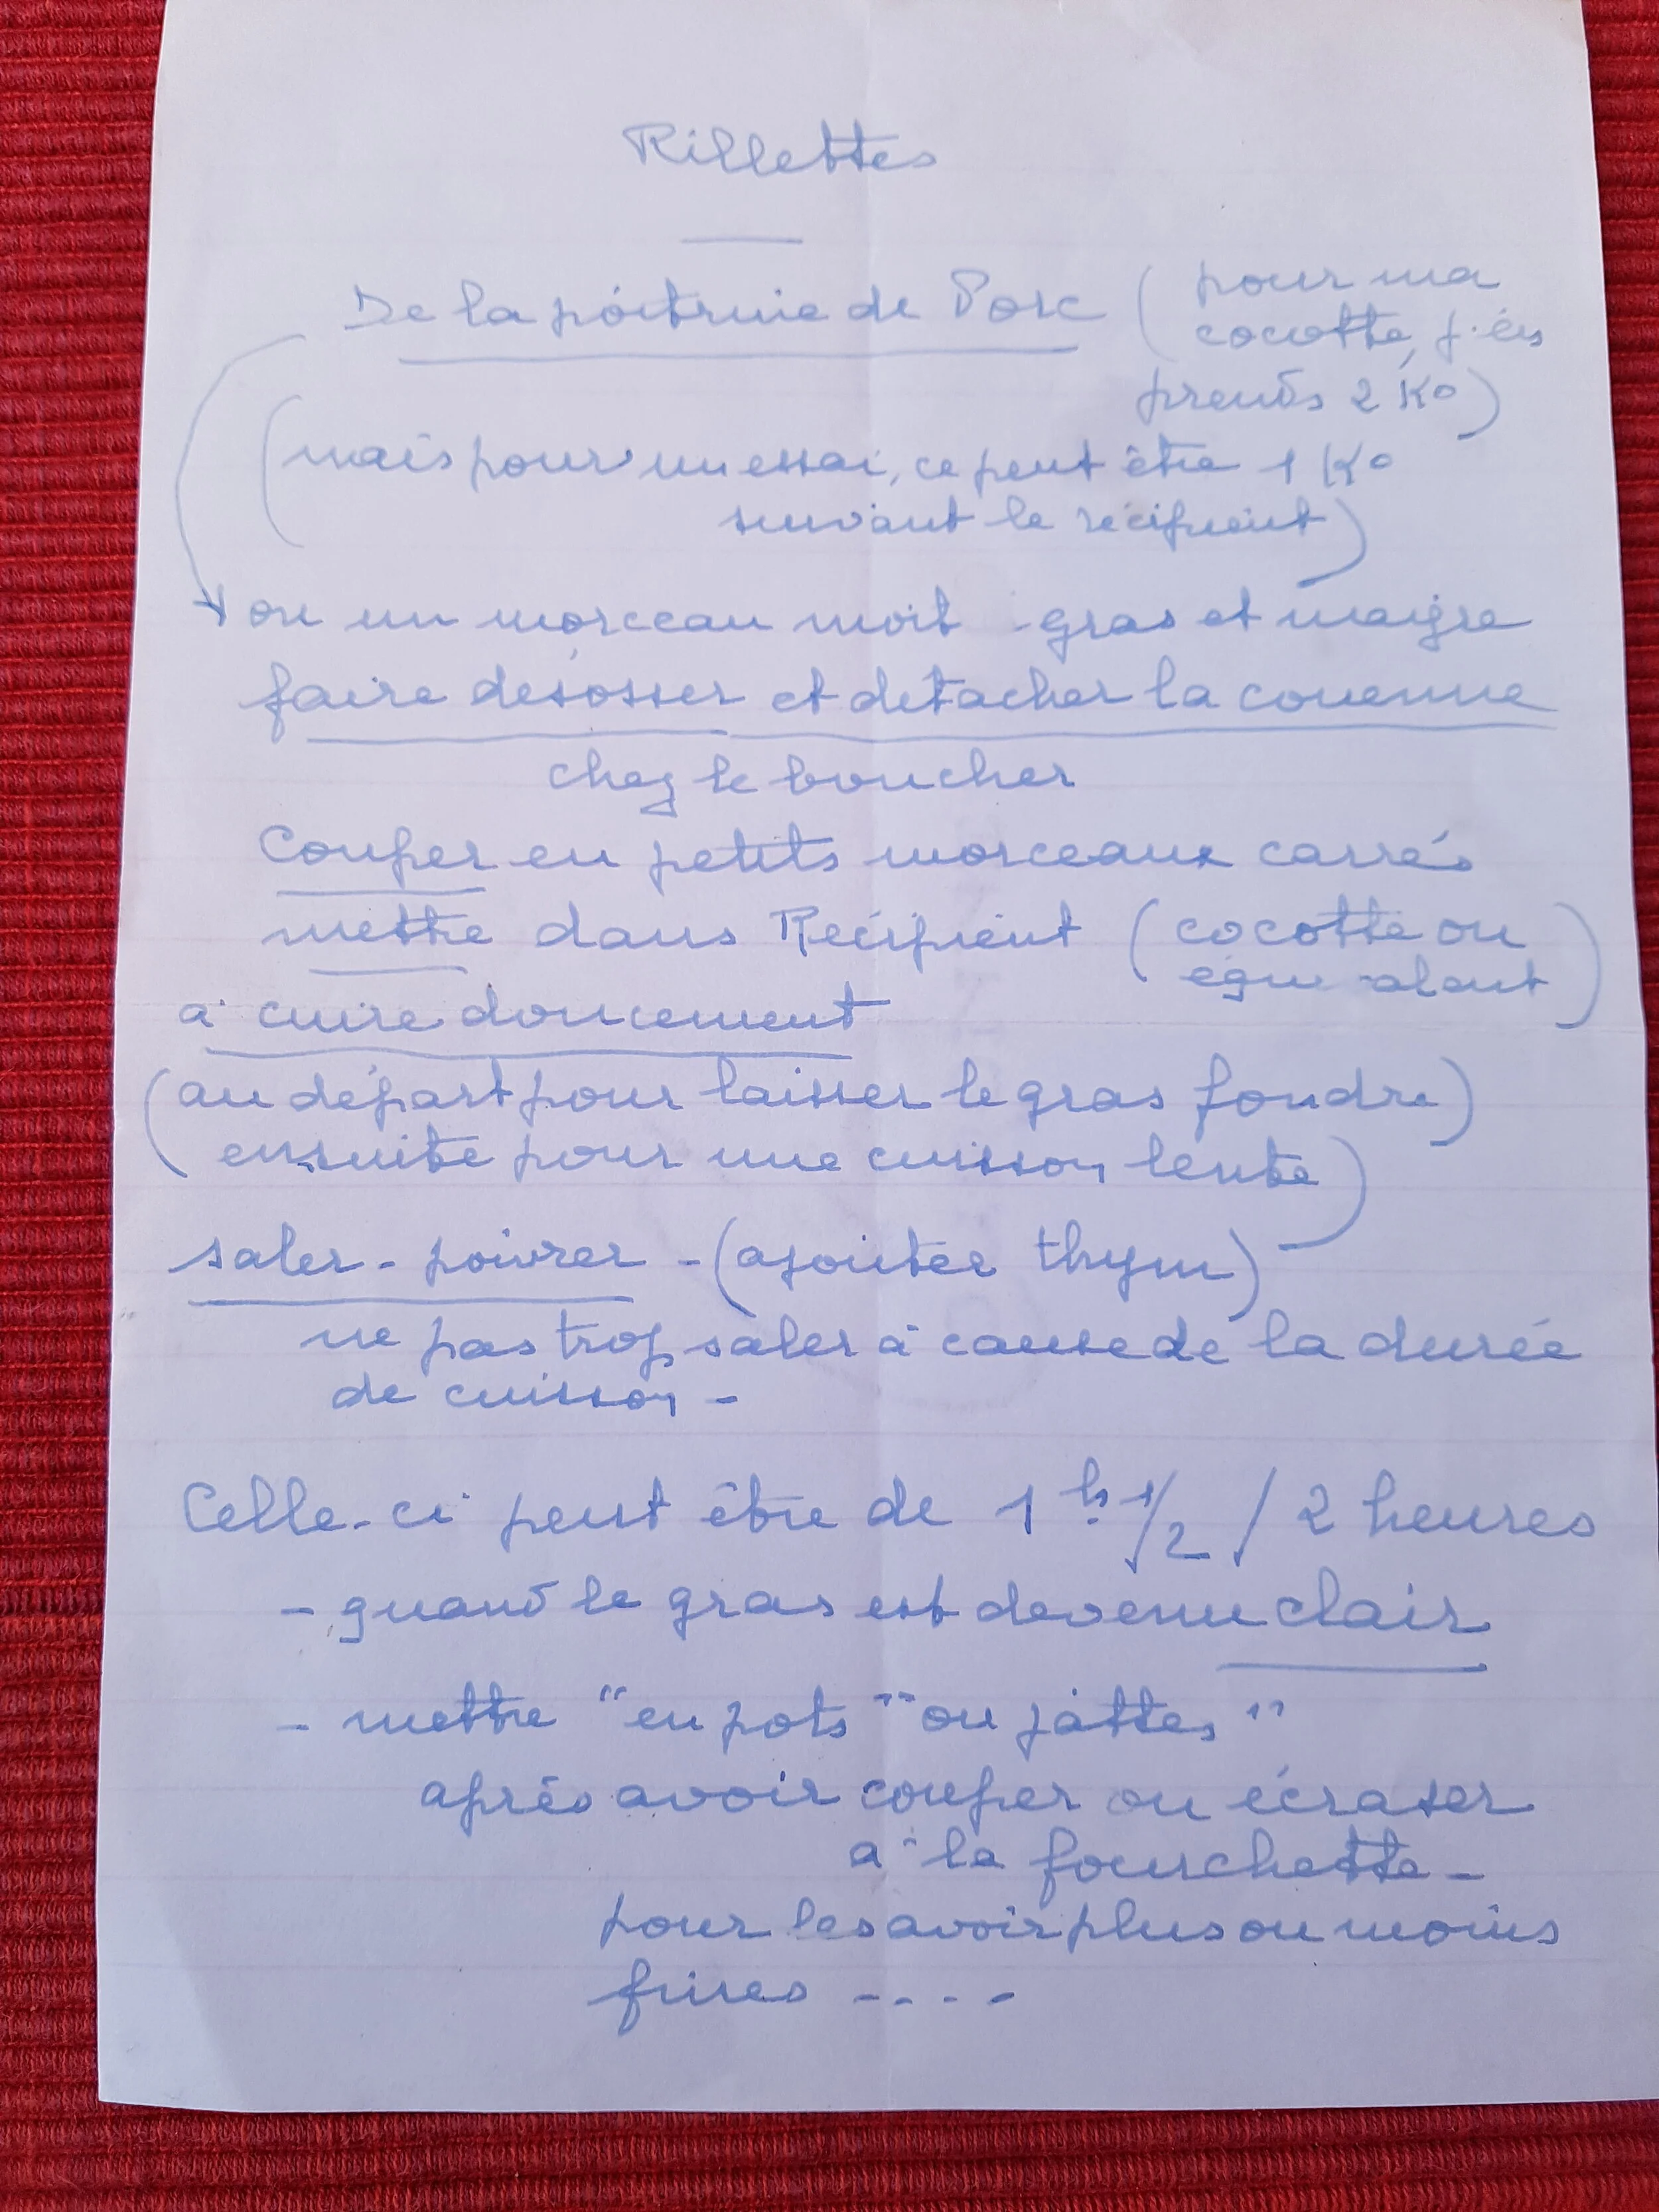 Rillettes
De la poitrine de Porc (pour ma
cocotte, j'en
prends 2 Ko)
(mais pour un essai, ce peut être 1 Ko
suivant le récipient)
ou un morceau moit gras et maigre
faire désosser et detacher la couenne
chez le boucher
Couper en petits morceaux carrés
mettre dans Récipient (cocotte ou
équivalant)
à cuire doucement
(au départ pour laisser le gras fondre)
(ensuite pour une cuisson lente)
saler - poivrer - (ajouter thym)
ne pas trop saler à cause de la durée
de cuisson -
Celle-ci peut être de 1 h 1/2 / 2 heures
- quand le gras est devenu clair
- mettre "en pots" ou jattes"
après avoir couper ou écraser
à la fourchette -
pour les avoir plus ou moins
fines ----